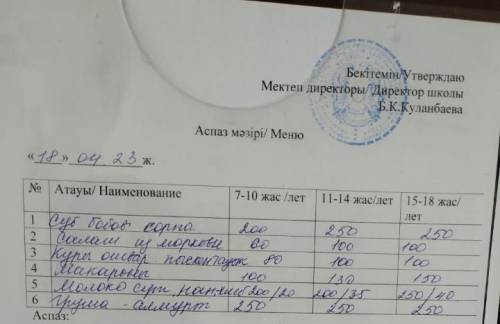 Бекітемін/Утверждаю
Мектеп директоры/ Директор школы
Б.К.Куланбаева
Аспаз мәзірі/ Меню
«18» 04 23 ж.
№ Атауы/ Наименование 7-10 жас /лет 11-14 жас/лет 15-18 жас/ лет
1 Суп бобов сорпа 200 250 250
2 Салат из моркови 60 100 100
3 80 100 100
4 Макароны 100 130 150
5 Молоко сут, нан 200/20 200/35 250/40
6 Груша - алмурт 250 250 250
Аспаз: